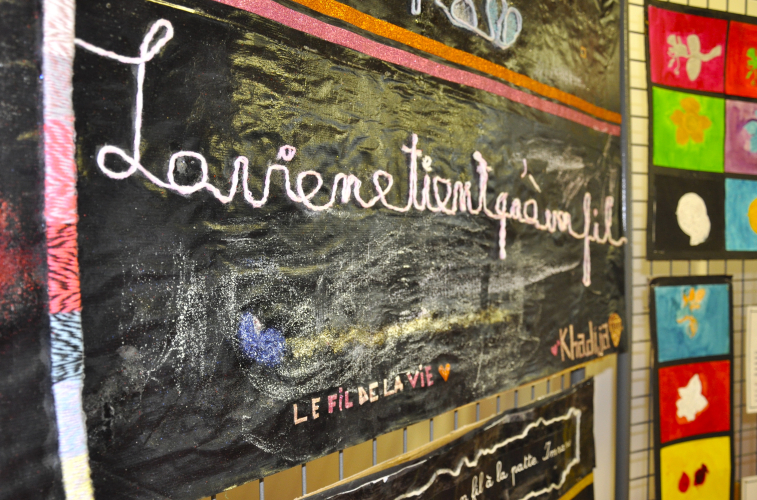 La vie ne tient qu'à un fil
Khadija
LE FIL DE LA VIE
fil à la patte